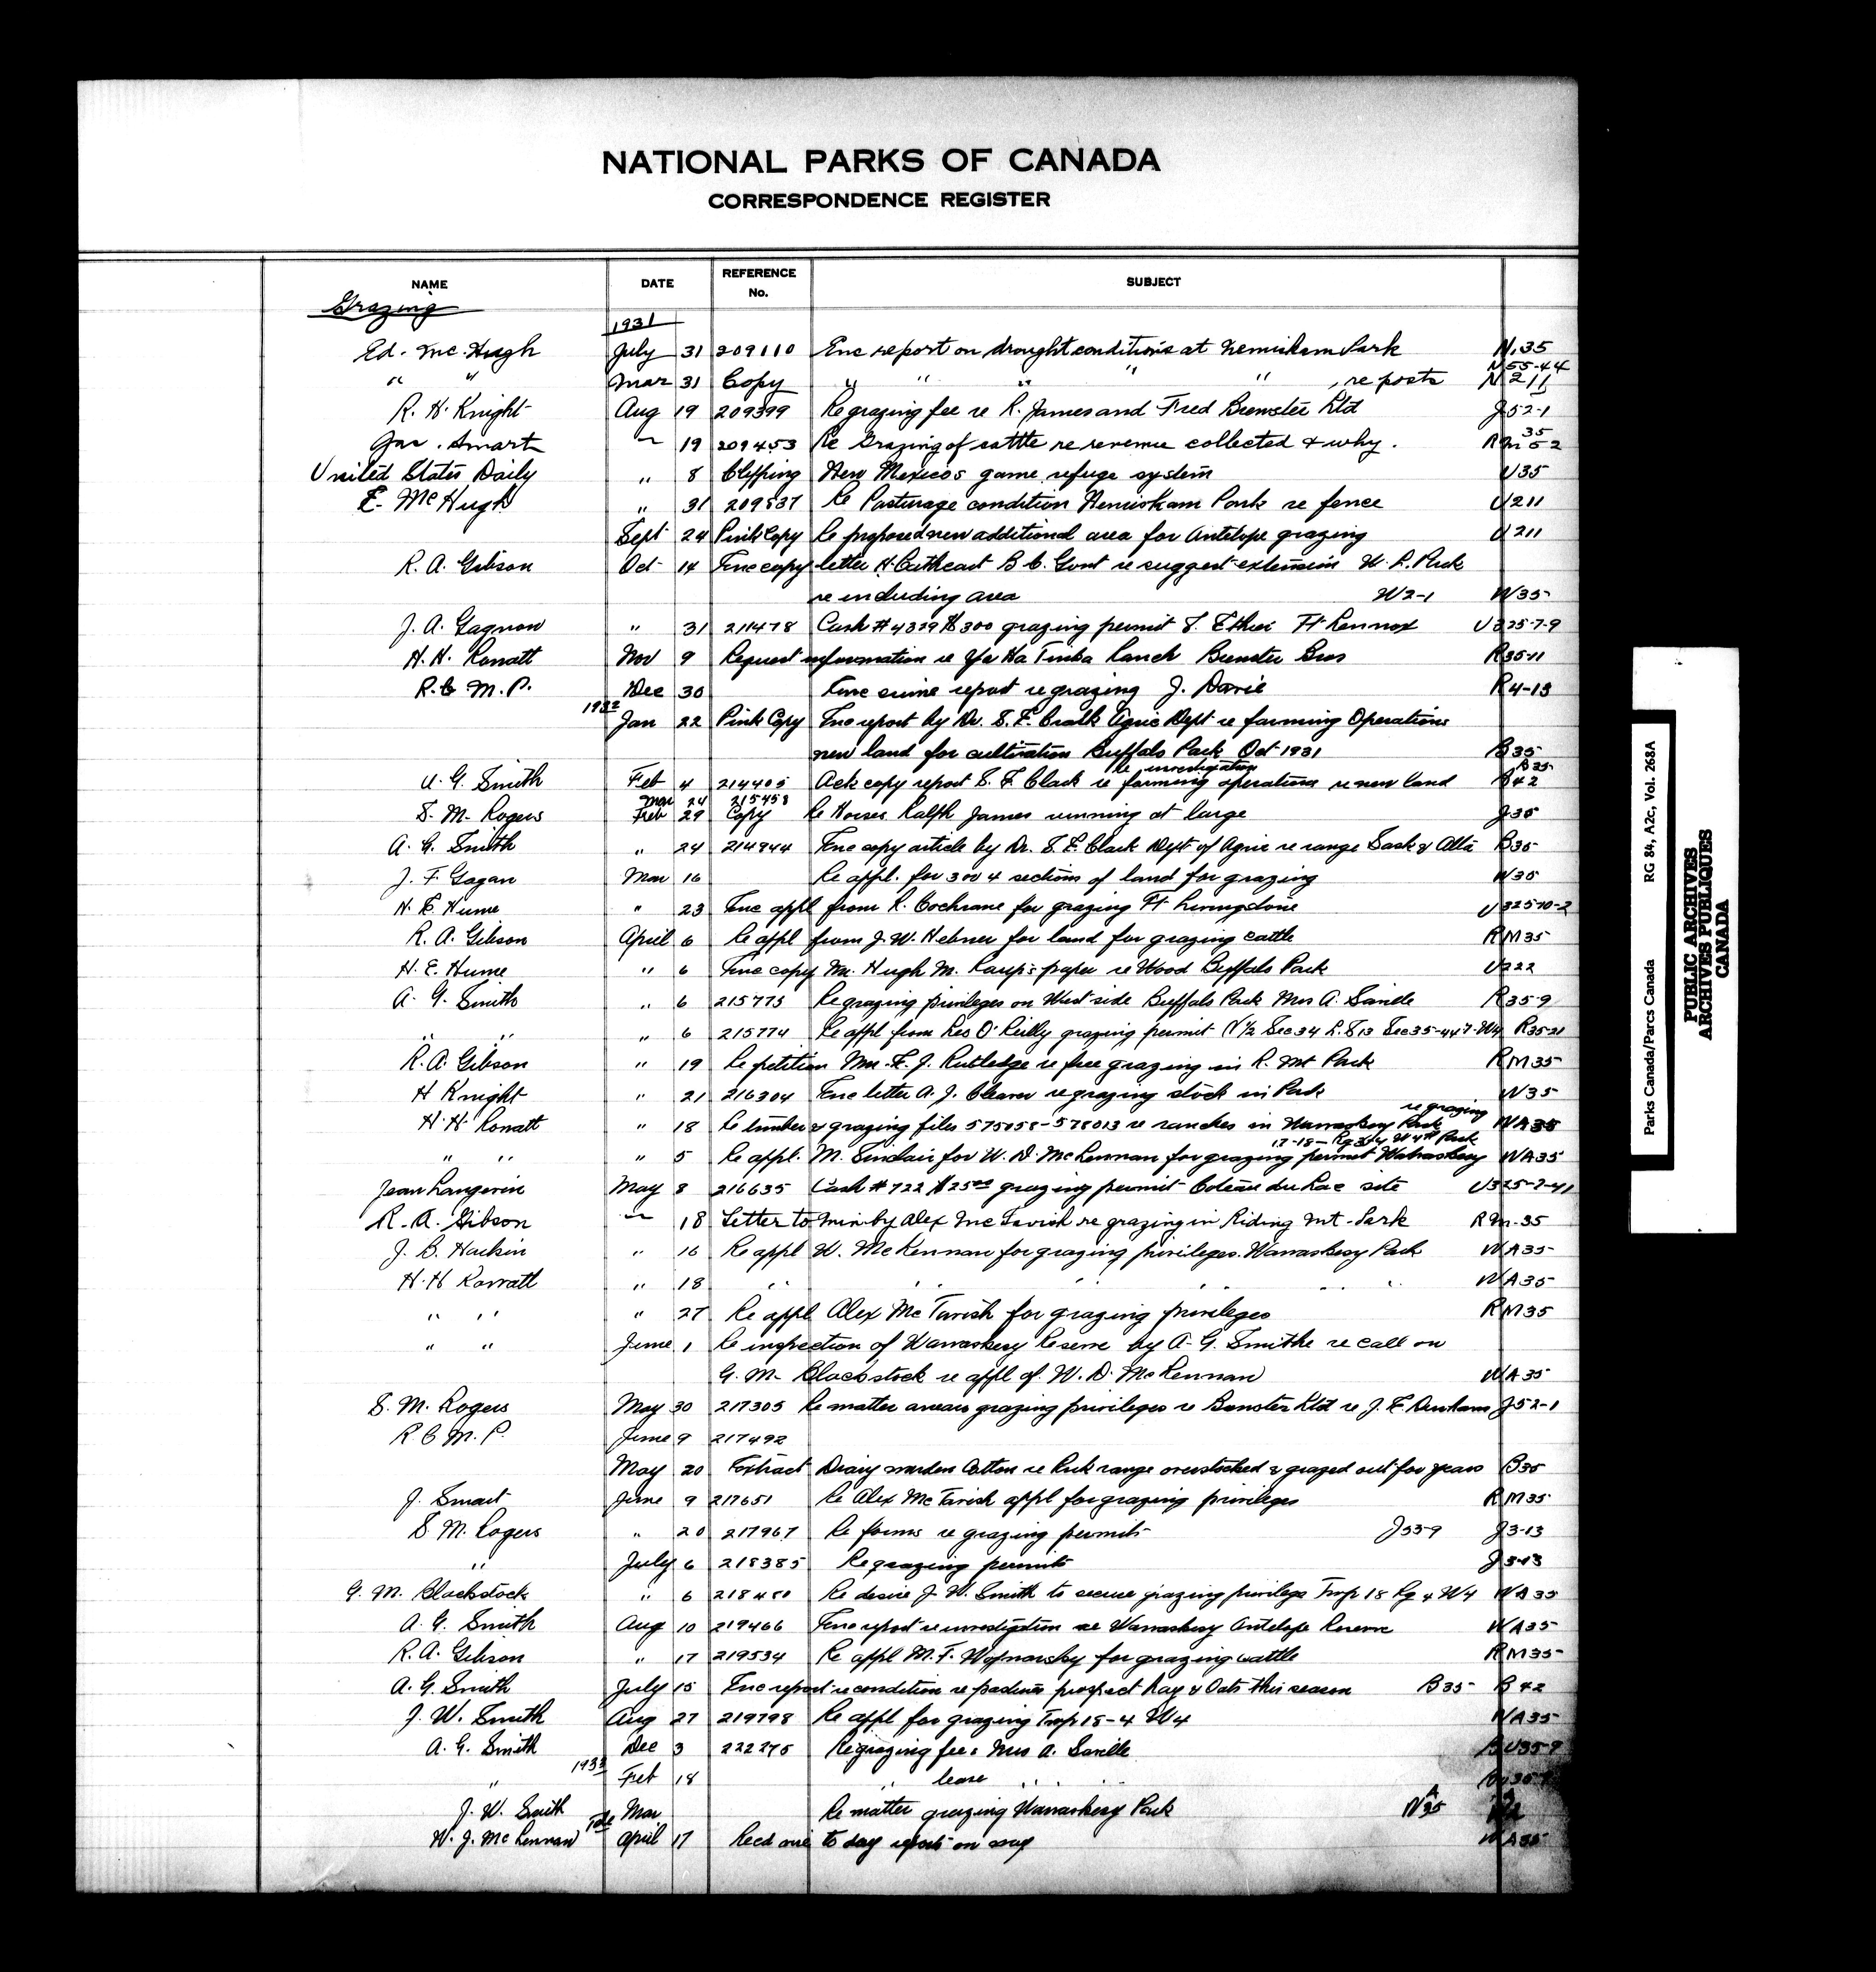 NATIONAL PARKS OF CANADA
CORRESPONDENCE REGISTER
NAME DATE REFERENCE No. SUBJECT
Grazing
1931
Ed. McHugh July 31 209110 Enc report on drought conditions at Nemiskam Park N.35
N55-44
" " Mar 31 Copy " " " " " , re posts N211
R. H. Knight Aug 19 209399 Re grazing fee re R. James and Fred Brewster Ltd J52-1
Jas. Smart " 19 209453 Re Grazing of cattle re revenue collected & why. RM 35 52
United States Daily " 8 Clipping New Mexicos game refuge system U35
E. McHugh " 31 209837 Re Pasturage condition Nemiskam Park re fence U211
Sept 24 Pink Copy Re proposed new additional area for Antelope grazing U211
R. A. Gibson Oct 14 Enc copy letter H. Cathcart B.C. Govt re suggest extension W. L. Park
re including area W2-1 W35
J. A. Gagnon " 31 211478 Cash # 4329 $300 grazing permit Ft Lennox U325-7-9
H. H. Rowatt Nov 9 Request information re Ya Ha Tinda Ranch Brewster Bros R35-11
R.C.M.P. Dec 30 Enc crime report re grazing J. Davie R4-13
1932
Jan 22 Pink Copy Enc report by Dr. S. E. Clark Agric Dept re farming Operations
new land for cultivation Buffalo Park Oct 1931 B35
re investigation B35
A. G. Smith Feb 4 214405 Ack copy report S. E. Clark re farming operations re new land B42
Mar 24 215458
S. M. Rogers Feb 29 Copy Re Horses Ralph James running at large J35
A. G. Smith " 24 214944 Enc copy article by Dr. S. E. Clark Dept of Agric re range Sask & Alta B35
J. F. Gagan Mar 16 Re appl. for 3 or 4 sections of land for grazing W35
H. E. Hume " 23 Enc appl from R. Cochrane for grazing Ft Livingstone U325-10-2
R. A. Gibson April 6 Re appl from J. W. Hebner for land for grazing cattle RM35
H. E. Hume " 6 Enc copy Mr. Hugh M. Raup's paper re Wood Buffalo Park U222
A. G. Smith " 6 215775 Re grazing privileges on West side Buffalo Park Mrs A. Saville R35-9
" " " 6 215774 Re appl from Les O'Reilly grazing permit N½ Sec 34 L.S 13 Sec 35-44-7-W4 R35-21
R. A. Gibson " 19 Re petition Mr. F. J. Rutledge re free grazing in R. Mt Park RM35
H Knight " 21 216304 Enc letter A. J. Cleaver re grazing stock in Park W35
re grazing
H. H. Rowatt " 18 Re timber & grazing files 575058-578013 re ranches in Wawaskesy Park WA35
17-18- Rg 3&4 W4th Park
" " " 5 Re appl. M. Sinclair for W. D. McLennan for grazing permit Wawaskesy WA35
Jean Langevin May 8 216635 Cash # 722 $25.00 grazing permit Coteau du Lac site U325-7-41
R. A. Gibson " 18 Letter to Min by Alex McTavish re grazing in Riding Mt. Park RM-35
J. B. Harkin " 16 Re appl W. McLennan for grazing privileges. Wawaskesy Park WA35
H. H Rowatt " 18 " " " " " " WA35
" " " 27 Re appl Alex McTavish for grazing privileges RM35
" " June 1 Re inspection of Wawaskesy Reserve by A. G. Smith re call on
G. M. Blackstock re appl of W. D. McLennan WA35
S. M. Rogers May 30 217305 Re matter arrears grazing privileges re Brewster Ltd re J. E. Durham J52-1
R C M. P. June 9 217492
May 20 Extract Diary warden Cotton re Park range overstocked & grazed out for years B35
J. Smart June 9 217651 Re Alex McTavish appl for grazing privileges RM35
S. M. Rogers " 20 217967 Re forms re grazing permits J35-9 J3-13
" July 6 218385 Re grazing permits J3-13
G. M. Blackstock " 6 218480 Re desire J. W. Smith to secure grazing privilege Twp 18 Rg 4 W4 WA35
A. G. Smith Aug 10 219466 Enc report re investigation re Wawaskesy Antelope Reserve WA35
R. A. Gibson " 17 219534 Re appl M. F. for grazing cattle RM35
A. G. Smith July 15 Enc report re condition re pastures prospect Hay & Oats this season B35 B42
J. W. Smith Aug 27 219798 Re appl for grazing Twp 18-4 W4 WA35
A. G. Smith Dec 3 222275 Re grazing fees Mrs A. Saville BU35-9
1933
" Feb 18 " lease " " "
J. W. Smith Mar Re matter grazing Wawaskesy Park WA35
W. J. McLennan Tele April 17 Recd to day report on
WA35
Parks Canada/Parcs Canada RG 84, A2c, Vol. 268A
PUBLIC ARCHIVES
ARCHIVES PUBLIQUES
CANADA